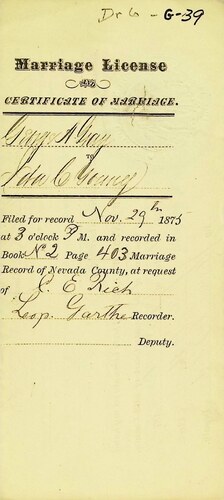 Dr G - G-39
Marriage License
AND
CERTIFICATE OF MARRIAGE.
George A Gray
TO
C
Filed for record Nov. 29th 1875
at 3 o'clock P M. and recorded in
Book No 2 Page 403 Marriage
Record of Nevada County, at request
of C. E Rich
Leop. Garthe Recorder.
Deputy.